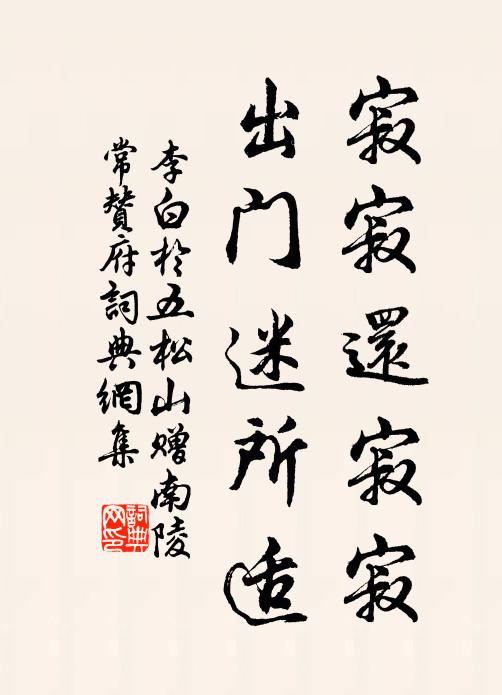 寂寂還寂寂
出门迷所适
李白於五松山赠南陵
常贊府詞典網集
詞典
网印